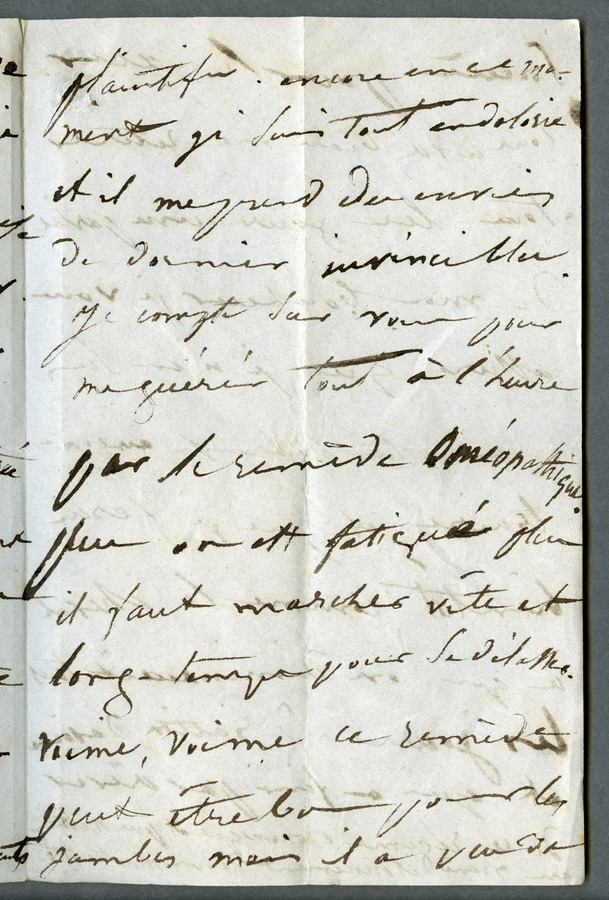 plaintifs. encore en ce mo-
ment je suis tout endolorie
et il me prend des envies
de dormir invincibles.
je compte sur vous pour
me guérir tout à l'heure
par le remède Oméopathique.
plus on est fatigué plus
il faut marcher vite et
longtemps pour se délasser.
Voime, voime ce remède
peut être bon pour les
jambes mais il a peu de